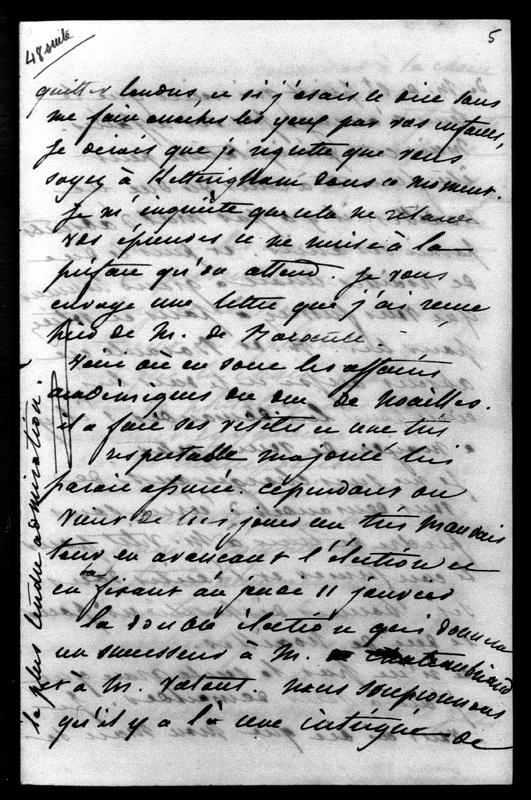 48 suite
5
quitter londres, et si j'osais le dire sans
me faire arracher les yeux par vos infantes,
je dirais que je regrette que vous
soyez à Ketteringham dans ce moment.
je m'inquiète que cela ne retarde
vos épreuves et ne nuise à la
préface qu'on attend. je vous
envoye une lettre que j'ai reçue
hier de M. de Barante.
Voici où en sont les affaires
académiques du duc de Noailles.
il a fait ses visites et une très
respectable majorité lui
parait assurée. cependant on
vient de lui jouer un très mauvais
tour en avancant l'élection et
en fixant au jeudi 11 janvier
la double élection qui donnera
un successeur à M. de Chateaubriand
et à M. Vatout. nous soupçonnons
qu'il y a là une intrigue de
la plus tendre admiration.